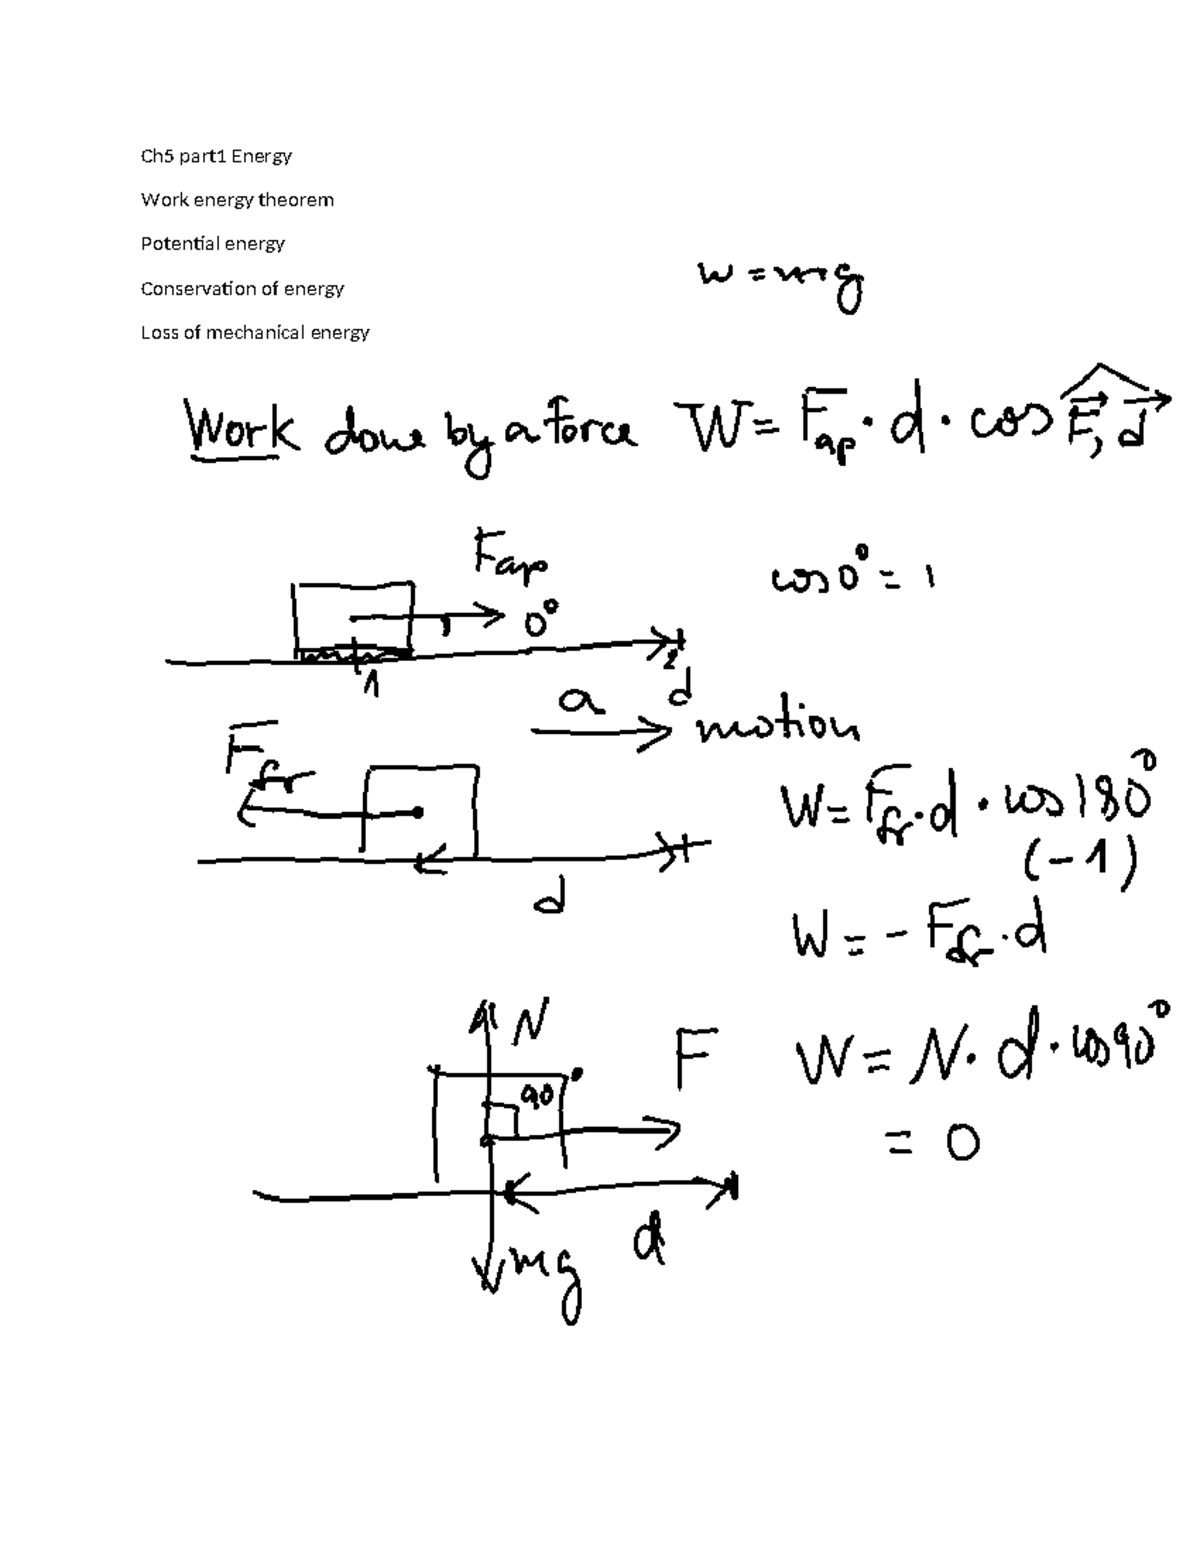 Ch5 part1 Energy
Work energy theorem
Potential energy
Conservation of energy
Loss of mechanical energy
w = mg
Work done by a force W = F_ap · d · cos F⃗, d⃗
F_ap
cos 0° = 1
0°
1
2
d
a
motion
F_fr
W = F_fr · d · cos 180°
(-1)
d
W = - F_fr · d
N
F
W = N · d · cos 90°
90°
= 0
d
mg